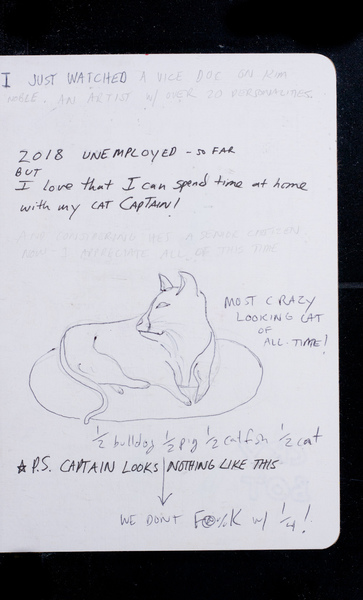 I JUST WATCHED A VICE DOC ON KIM
NOBLE. AN ARTIST W/ OVER 20 PERSONALITIES
2018 UNEMPLOYED - SO FAR
BUT
I love that I can spend time at home
with my CAT CAPTAIN!
NOW I APPRECIATE ALL OF THIS TIME
MOST CRAZY
LOOKING CAT
OF
ALL-TIME!
1/2 bulldog 1/2 pig 1/2 catfish 1/2 cat
☆ P.S. CAPTAIN LOOKS NOTHING LIKE THIS
WE DON'T F@%K W/ 1/4!